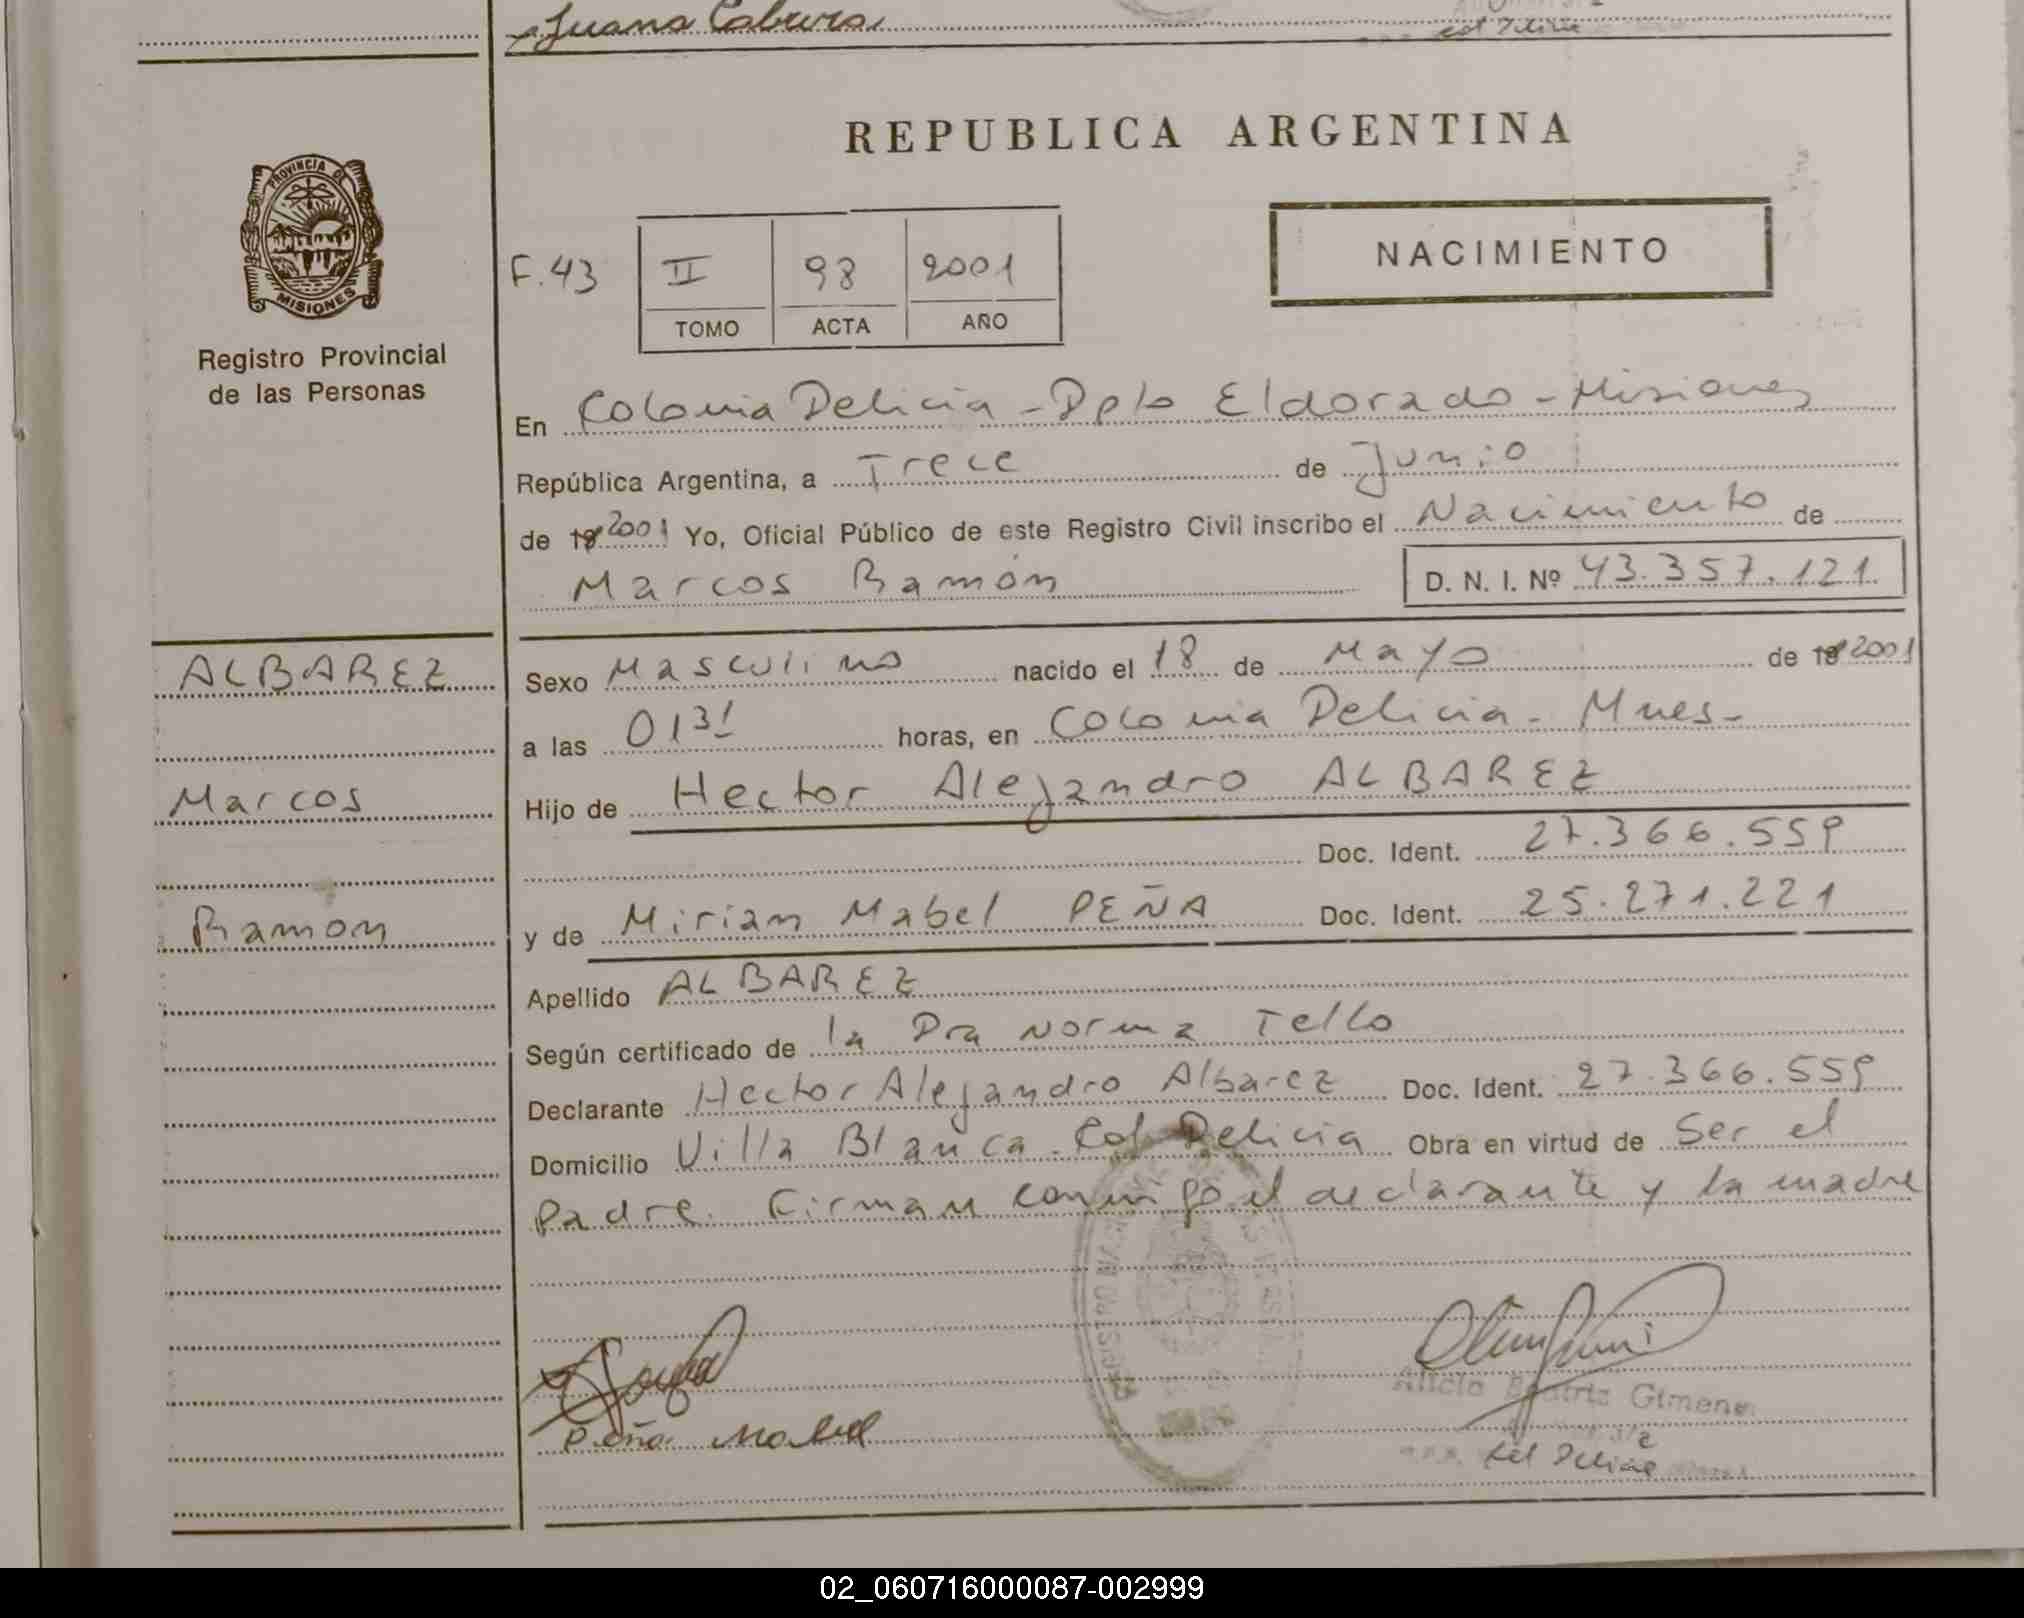 Juana Cabrera
Col Delicia
PROVINCIA DE
MISIONES
Registro Provincial
de las Personas
REPUBLICA ARGENTINA
NACIMIENTO
F.43 II 98 2001
TOMO ACTA AÑO
En Colonia Delicia - Dpto Eldorado - Misiones
República Argentina, a Trece de Junio
de 19 2001 Yo, Oficial Público de este Registro Civil inscribo el Nacimiento de
Marcos Ramón D. N. I. Nº 43.357.121
ALBAREZ
Marcos
Ramon
Sexo Masculino nacido el 18 de Mayo de 19 2001
a las 01 31 horas, en Colonia Delicia - Mnes -
Hijo de Hector Alejandro ALBAREZ
Doc. Ident. 27.366.559
y de Mirian Mabel PEÑA Doc. Ident. 25.271.221
Apellido ALBAREZ
Según certificado de la Dra Norma Tello
Declarante Hector Alejandro Albarez Doc. Ident. 27.366.559
Domicilio Villa Blanca - Col Delicia Obra en virtud de Ser el
padre. Firman conmigo el declarante y la madre
Peña Mabel
Alicia Beatriz Gimenez
Col Delicia
02_060716000087-002999